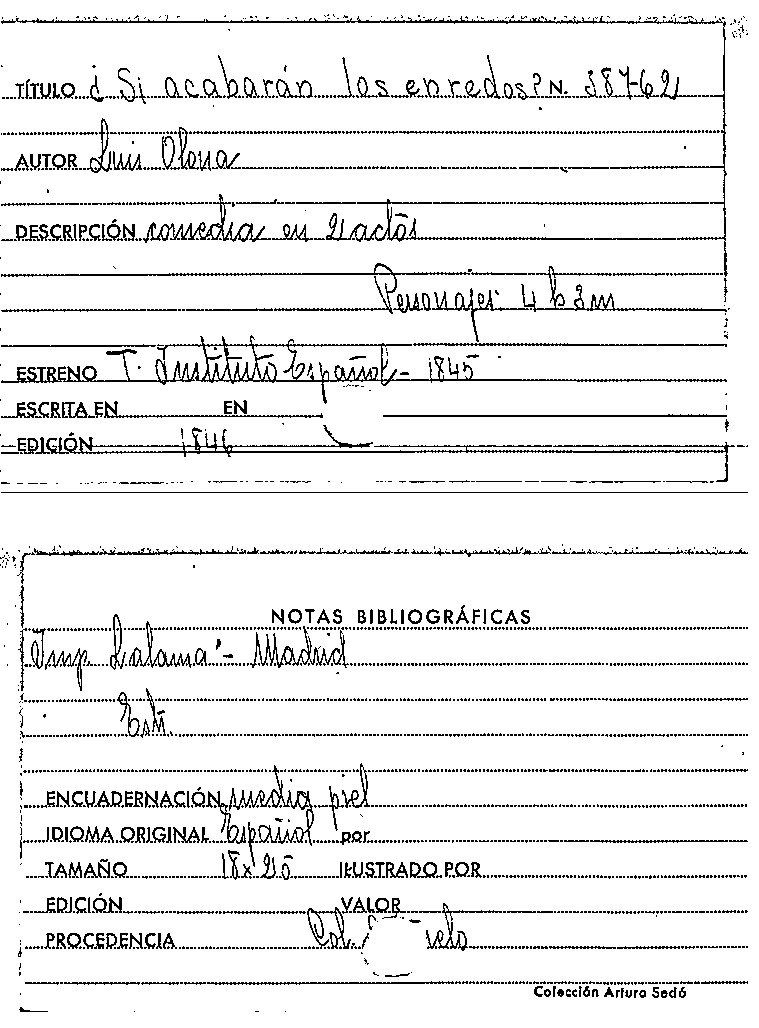 TÍTULO ¿Si acabarán los enredos? N. 38762
AUTOR Luis Olona
DESCRIPCIÓN comedia en 2 actos
Personajes: 4 h 3 m
ESTRENO T. Instituto Español - 1845
ESCRITA EN EN
EDICIÓN 1846
NOTAS BIBLIOGRÁFICAS
Imp. Lalama - Madrid
ENCUADERNACIÓN media piel
IDIOMA ORIGINAL Español por
TAMAÑO 18 x 25 ILUSTRADO POR
EDICIÓN VALOR
PROCEDENCIA Col.
Colección Arturo Sedó